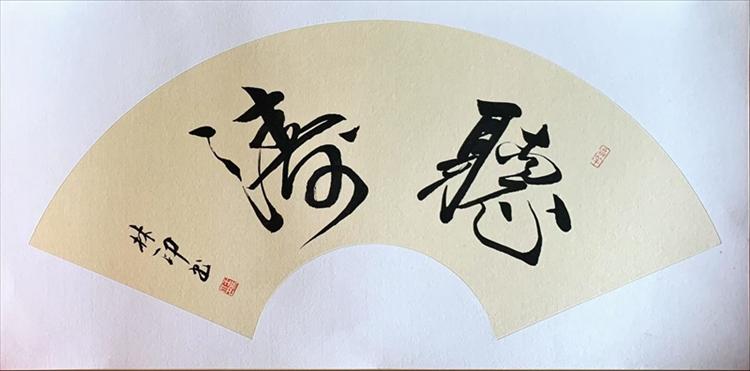 聽濤
林印书